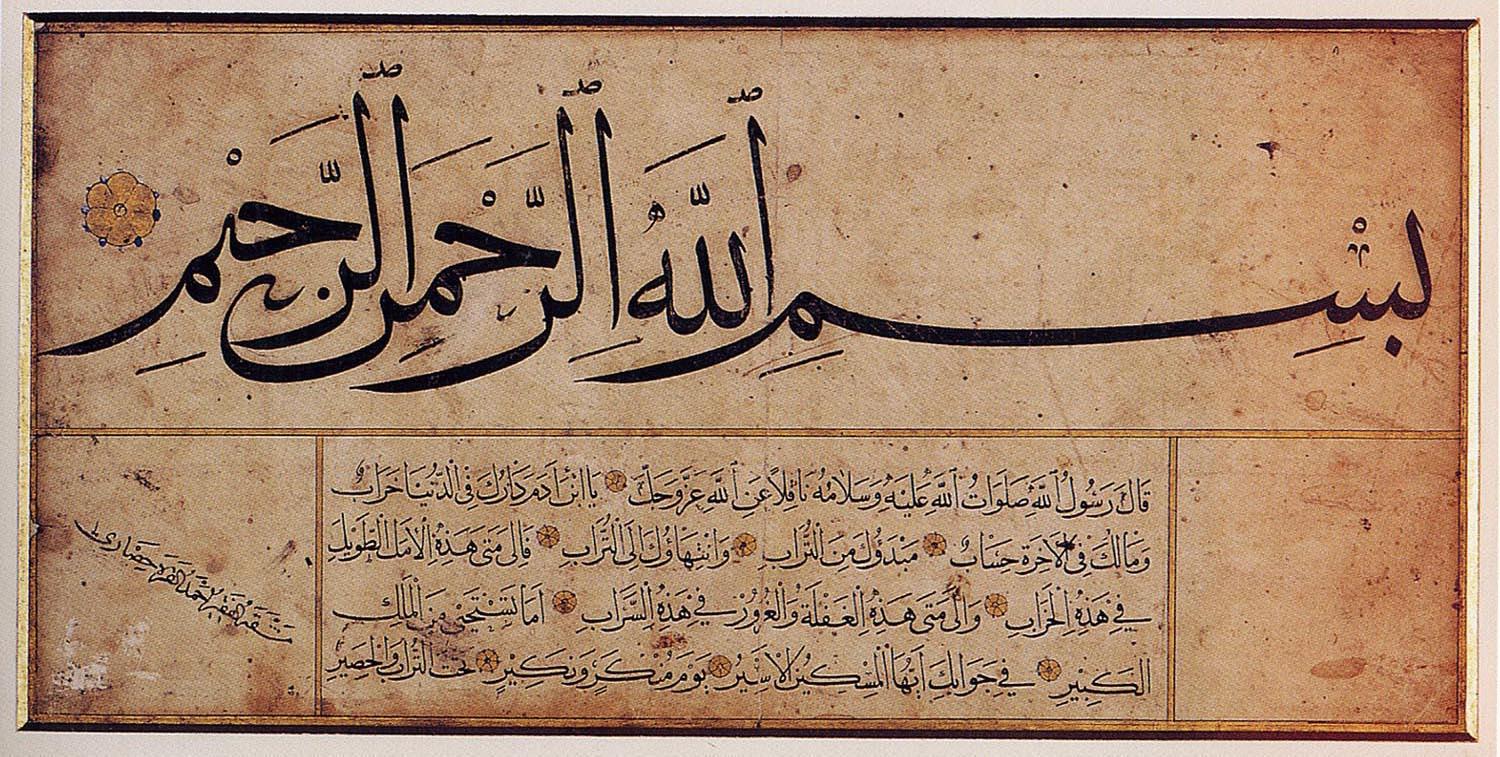 بِسْمِ ٱللَّهِ ٱلرَّحْمٰنِ ٱلرَّحِيمِ
قَالَ رَسُولُ ٱللَّهِ صَلَوَاتُ ٱللَّهِ عَلَيْهِ وَسَلَامُهُ نَاقِلاً عَنِ ٱللَّهِ عَزَّ وَجَلَّ يَا ابْنَ آدَمَ دَارُكَ فِي الدُّنْيَا خَرَابٌ
وَمَالُكَ فِي الْآخِرَةِ حِسَابٌ مَبْدَؤُكَ مِنَ التُّرَابِ وَانْتِهَاؤُكَ إِلَى التُّرَابِ فَإِلَى مَتَى هَذِهِ الْأَمَلُ الطَّوِيلُ
فِي هَذِهِ الْخَرَابِ وَإِلَى مَتَى هَذِهِ الْغَفْلَةُ وَالْغُرُورُ فِي هَذِهِ السَّرَابِ أَمَا تَسْتَحْيِي مِنَ الْمَلِكِ
الْكَبِيرِ فِي جَوَابِكَ أَيُّهَا الْمِسْكِينُ الْأَسِيرُ يَوْمَ مُنْكَرٍ وَنَكِيرٍ تَحْتَ التُّرَابِ وَالْحَصِيرِ
مشقه الفقير أحمد القره حصاري